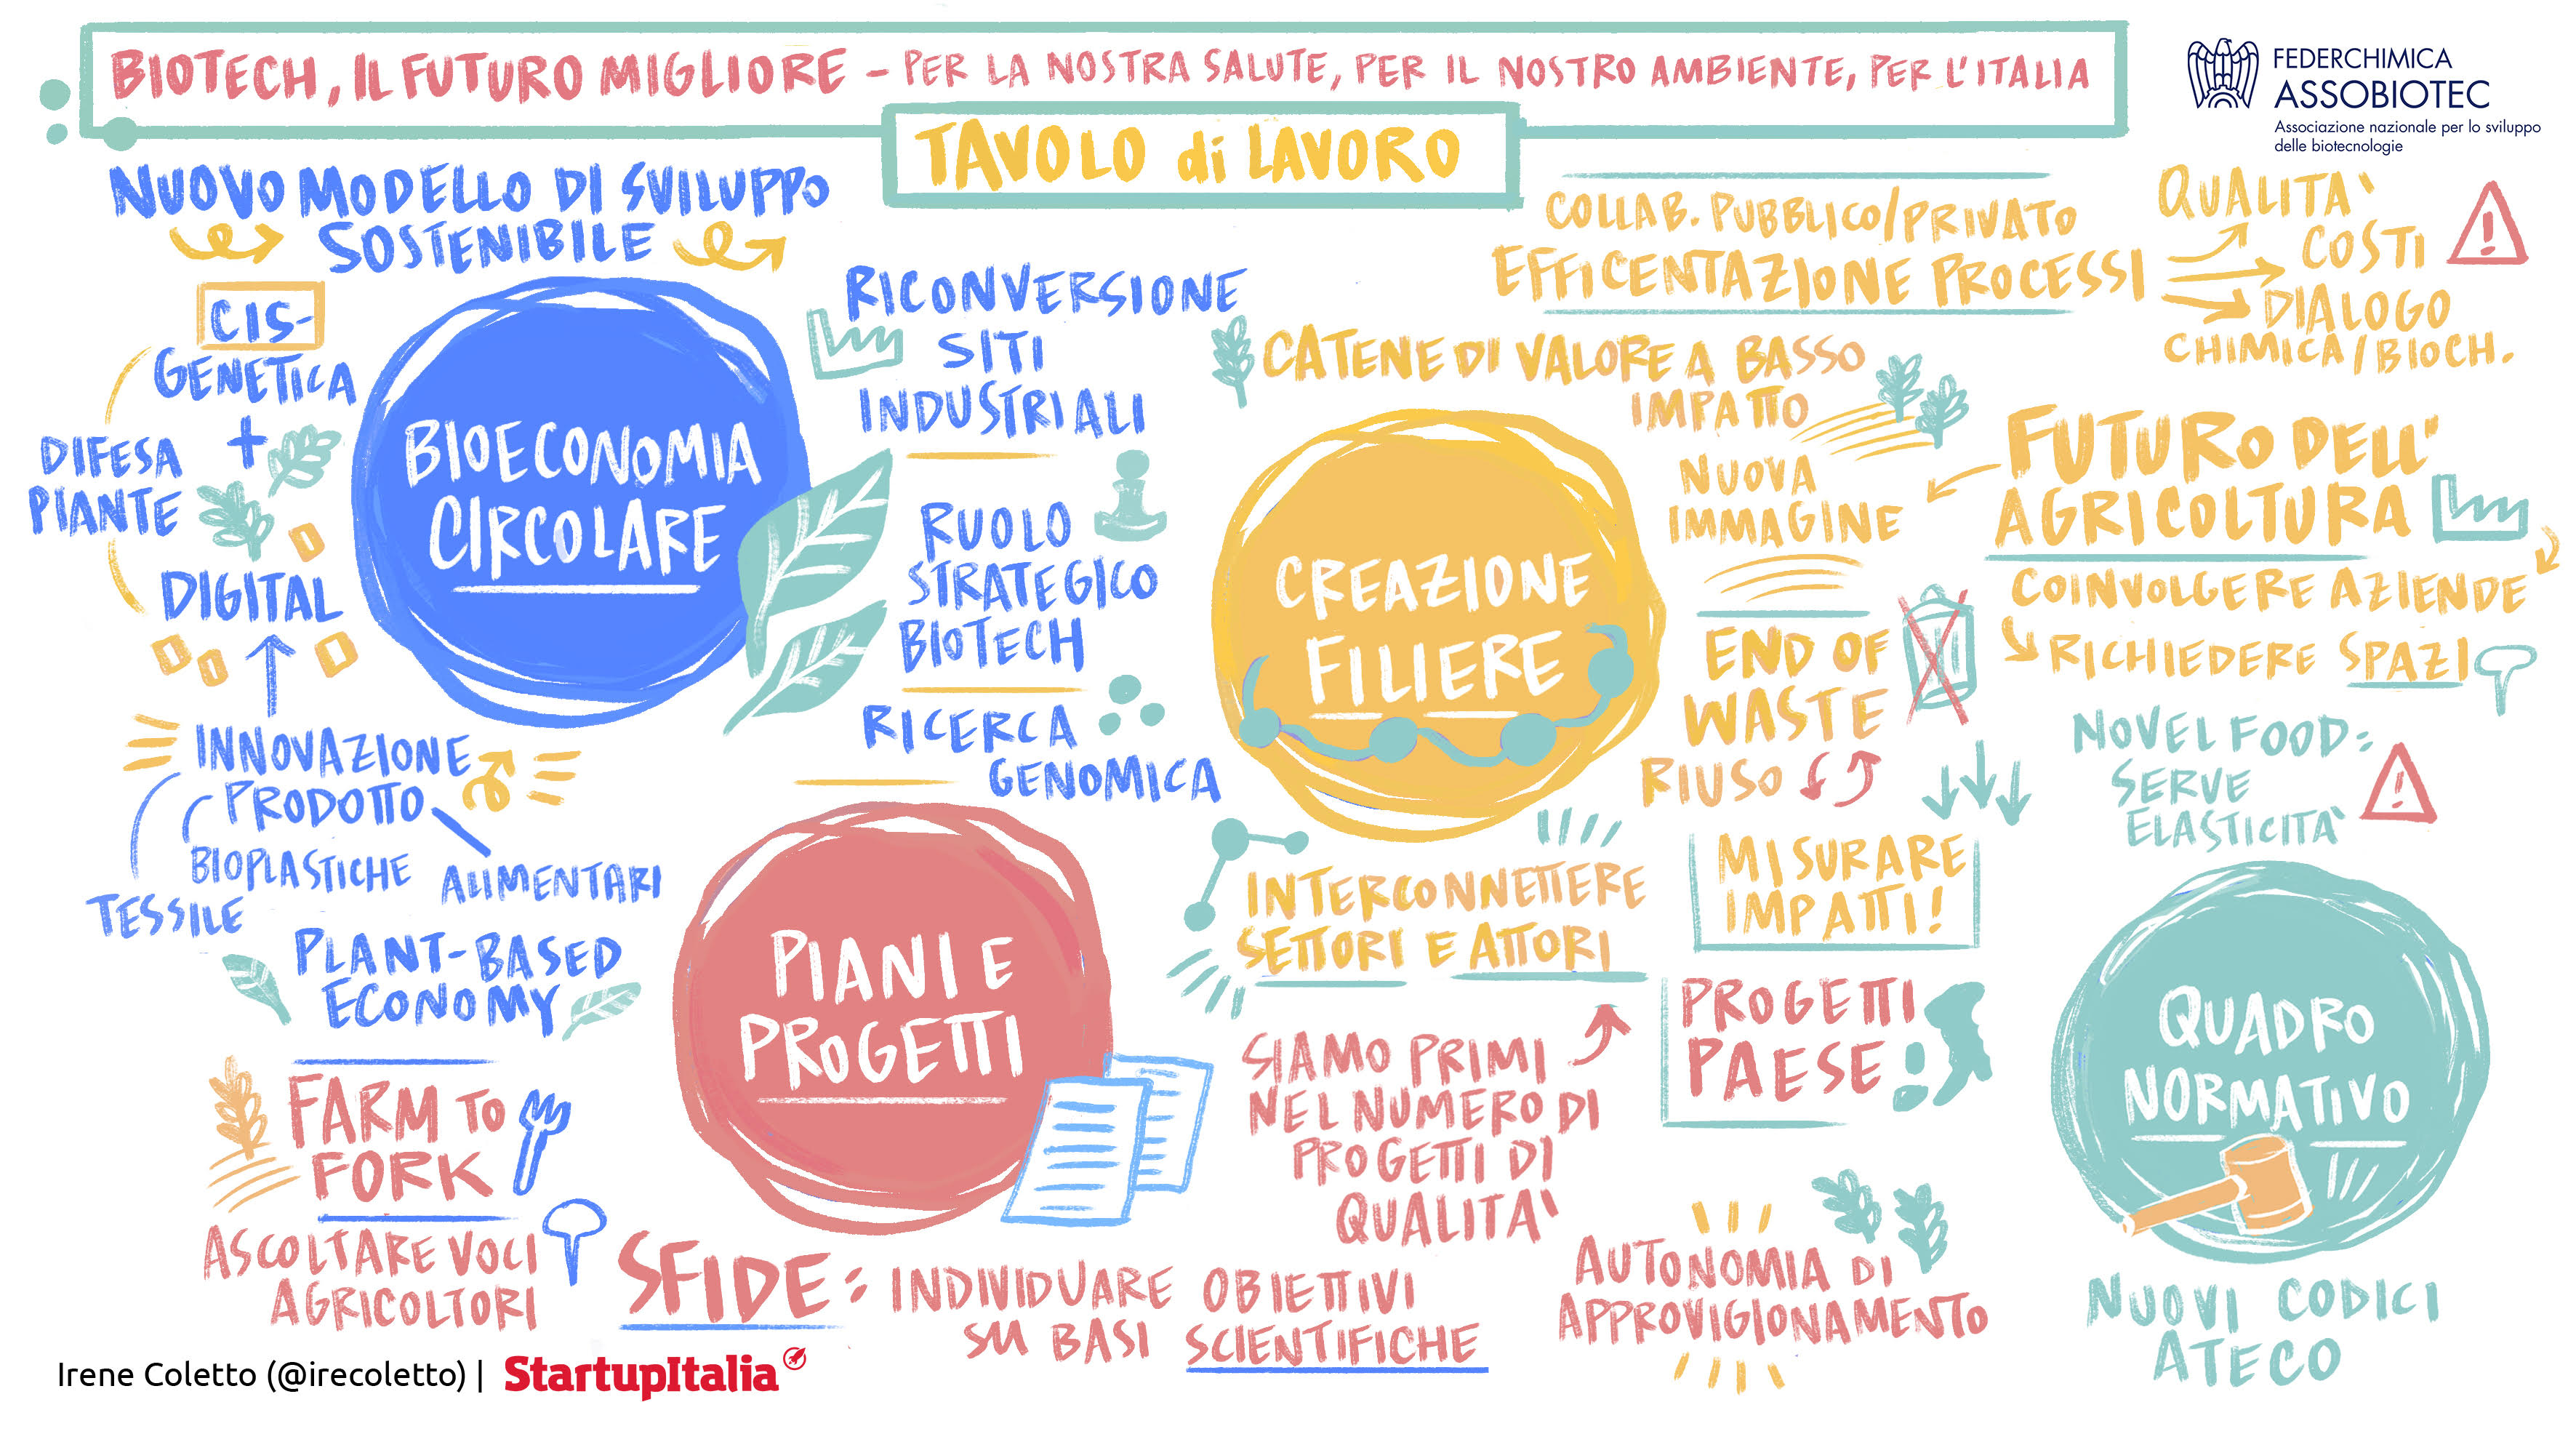 BIOTECH, IL FUTURO MIGLIORE - PER LA NOSTRA SALUTE, PER IL NOSTRO AMBIENTE, PER L'ITALIA
TAVOLO di LAVORO
FEDERCHIMICA
ASSOBIOTEC
Associazione nazionale per lo sviluppo
delle biotecnologie
NUOVO MODELLO DI SVILUPPO
SOSTENIBILE
CIS-
GENETICA
+
DIFESA
PIANTE
DIGITAL
BIOECONOMIA
CIRCOLARE
INNOVAZIONE
PRODOTTO
BIOPLASTICHE
ALIMENTARI
TESSILE
PLANT-BASED
ECONOMY
RICONVERSIONE
SITI
INDUSTRIALI
RUOLO
STRATEGICO
BIOTECH
RICERCA
GENOMICA
COLLAB. PUBBLICO/PRIVATO
EFFICENTAZIONE PROCESSI
QUALITA'
COSTI
DIALOGO
CHIMICA/BIOCH.
!
CATENE DI VALORE A BASSO
IMPATTO
CREAZIONE
FILIERE
NUOVA
IMMAGINE
FUTURO DELL'
AGRICOLTURA
COINVOLGERE AZIENDE
RICHIEDERE SPAZI
END OF
WASTE
RIUSO
MISURARE
IMPATTI!
INTERCONNETTERE
SETTORI E ATTORI
NOVEL FOOD:
SERVE
ELASTICITA'
!
QUADRO
NORMATIVO
NUOVI CODICI
ATECO
PIANI E
PROGETTI
FARM TO
FORK
ASCOLTARE VOCI
AGRICOLTORI
SFIDE: INDIVIDUARE OBIETTIVI
SU BASI SCIENTIFICHE
SIAMO PRIMI
NEL NUMERO DI
PROGETTI DI
QUALITA'
PROGETTI
PAESE
AUTONOMIA DI
APPROVIGIONAMENTO
Irene Coletto (@irecoletto) | StartupItalia